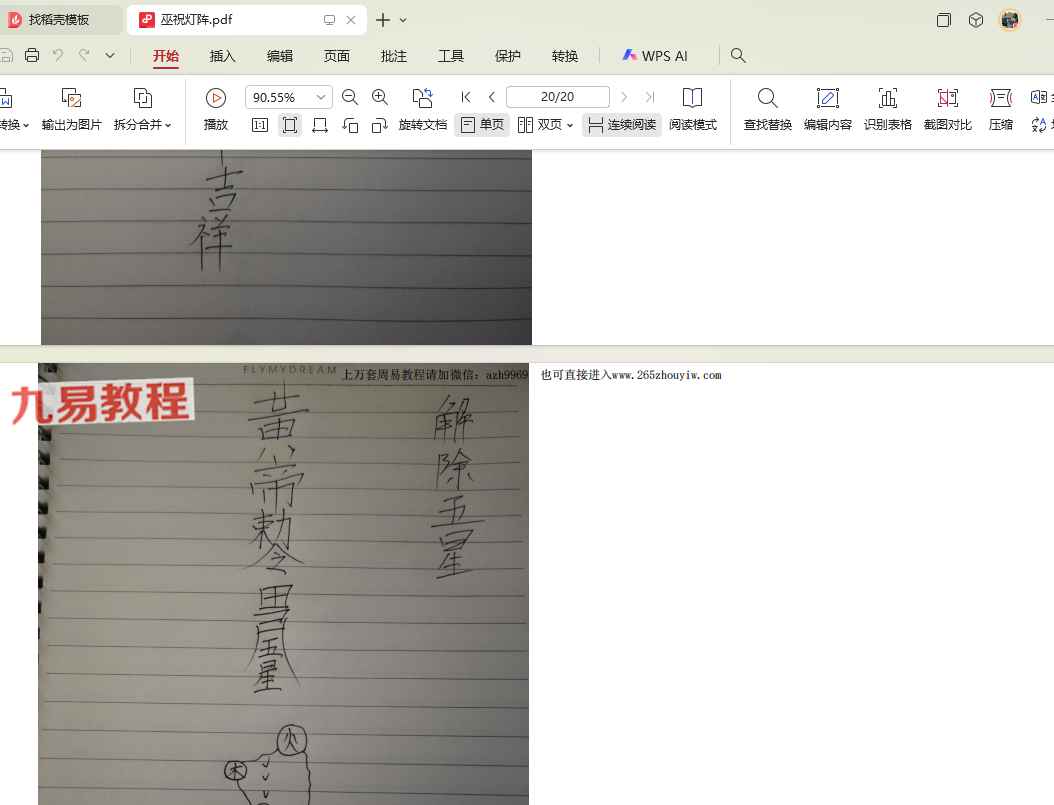 找稻壳模板
巫祝灯阵.pdf
开始 插入 编辑 页面 批注 工具 保护 转换 WPS AI
90.55% 20/20
转换 输出为图片 拆分合并 播放 旋转文档 单页 双页 连续阅读 阅读模式 查找替换 编辑内容 识别表格 截图对比 压缩
吉祥
FLYMYDREAM
上万套周易教程请加微信：azh9969 也可直接进入www.265zhouyiw.com
九易教程
解除五星
黄帝勅令
五星
火
木